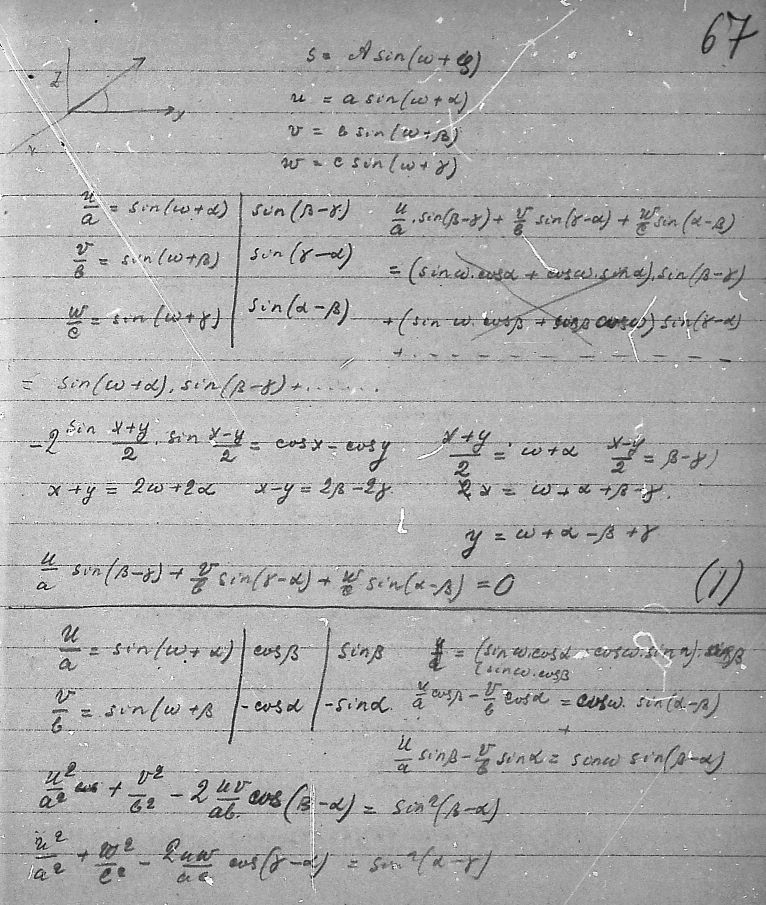 67
z
y
x
s = A sin(ω+φ)
u = a sin(ω+α)
v = b sin(ω+β)
w = c sin(ω+γ)
u/a = sin(ω+α) | sin(β-γ)
v/b = sin(ω+β) | sin(γ-α)
w/c = sin(ω+γ) | sin(α-β)
u/a . sin(β-γ) + v/b sin(γ-α) + w/c sin(α-β)
= (sinω.cosα + cosω.sinα).sin(β-γ)
+ (sinω.cosβ + sinβ cosω) sin(γ-α)
+ . - - - - - - - - -
= sin(ω+α).sin(β-γ) + .......
-2 sin (x+y)/2 . sin (x-y)/2 = cosx - cosy
(x+y)/2 = ω+α (x-y)/2 = β-γ)
x+y = 2ω+2α x-y = 2β-2γ
x = ω+α+β-γ.
y = ω+α-β+γ
u/a sin(β-γ) + v/b sin(γ-α) + w/c sin(α-β) = 0 (1)
u/a = sin(ω+α) | cosβ | sinβ
v/b = sin(ω+β | -cosα | -sinα
u/a = (sinω.cosα cosω.sinα) sinβ
(sinω.cosβ
u/a cosβ - v/b cosα = cosω. sin(α-β)
+
u/a sinβ - v/b sinα = sinω sin(β-α)
u²/a² + v²/b² - 2 uv/ab cos(β-α) = sin²(β-α)
u²/a² + w²/c² - 2uw/ac cos(γ-α) = sin²(α-γ)